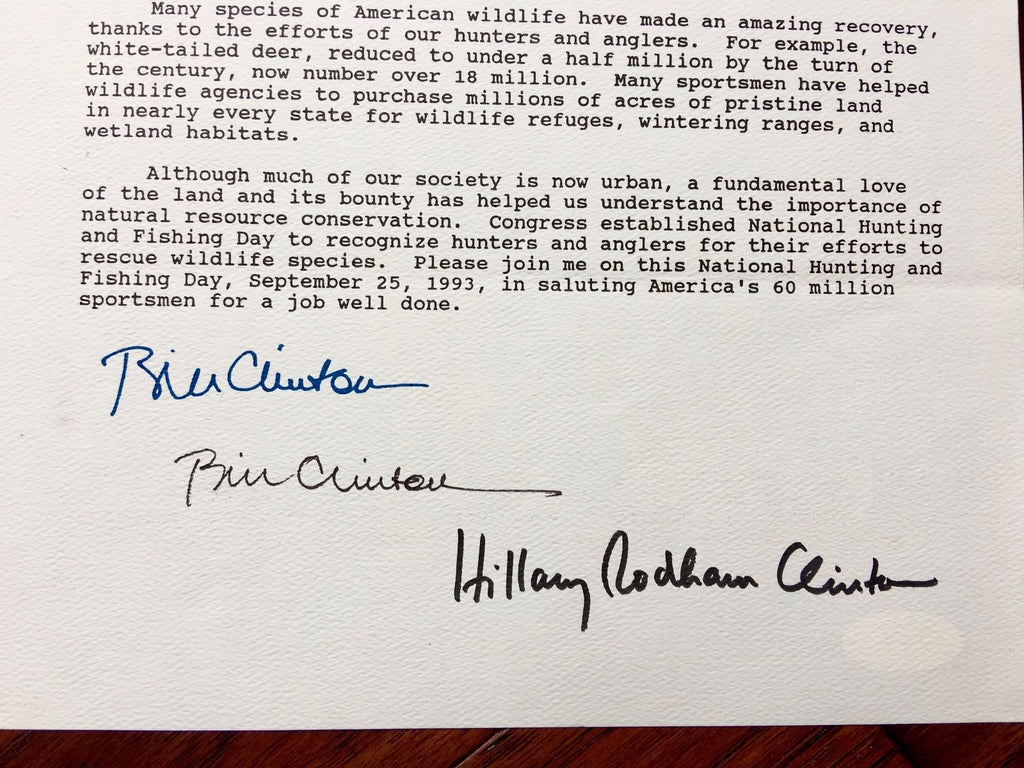 Many species of American wildlife have made an amazing recovery,
thanks to the efforts of our hunters and anglers. For example, the
white-tailed deer, reduced to under a half million by the turn of
the century, now number over 18 million. Many sportsmen have helped
wildlife agencies to purchase millions of acres of pristine land
in nearly every state for wildlife refuges, wintering ranges, and
wetland habitats.
Although much of our society is now urban, a fundamental love
of the land and its bounty has helped us understand the importance of
natural resource conservation. Congress established National Hunting
and Fishing Day to recognize hunters and anglers for their efforts to
rescue wildlife species. Please join me on this National Hunting and
Fishing Day, September 25, 1993, in saluting America's 60 million
sportsmen for a job well done.
Bill Clinton
Bill Clinton
Hillary Rodham Clinton